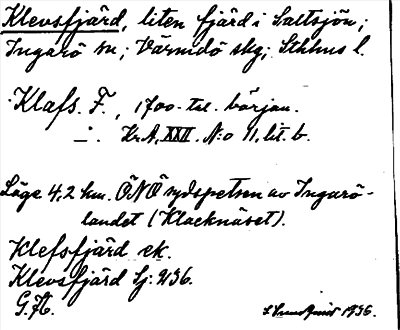 Klevsfjärd, liten fjärd i Saltsjön;
Ingarö sn; Värmdö skg; Sthlms l.
Klafs. F., 1700-tal. början.
Kr.A. XXII. N:o 11, lit. b.
Läge 4,2 km. ÖNÖ sydspetsen av Ingarö-
landet (Klacknäset).
Klefsfjärd ek.
Klevsfjärd Sj: 236.
G.A.
1935.